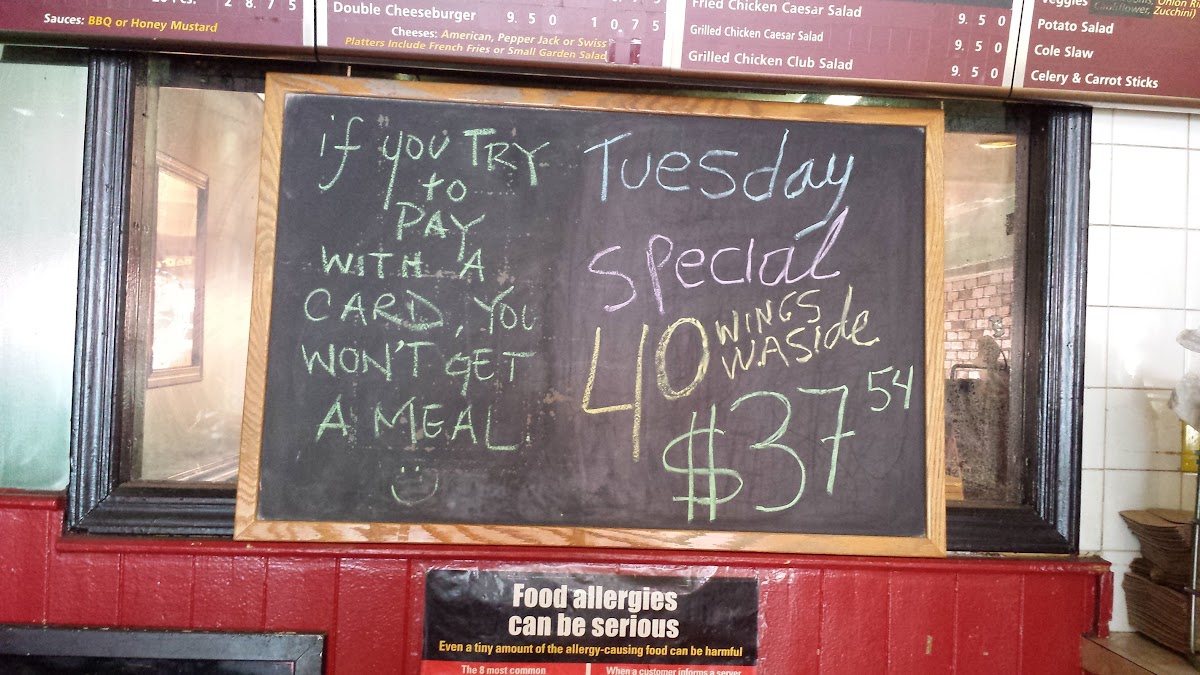 28.75
Sauces: BBQ or Honey Mustard
Double Cheeseburger 9.50 10.75
Cheeses: American, Pepper Jack or Swiss
Platters Include French Fries or Small Garden Salad
Fried Chicken Caesar Salad 9.50
Grilled Chicken Caesar Salad 9.50
Grilled Chicken Club Salad 9.50
Veggies
Onion
Cauliflower, Zucchini)
Potato Salad
Cole Slaw
Celery & Carrot Sticks
if you TRY
to
PAY
WITH A
CARD, YOU
WON'T GET
A MEAL
Tuesday
Special
40 WINGS
W.ASide
$37 54
Food allergies
can be serious
Even a tiny amount of the allergy-causing food can be harmful
The 8 most common
When a customer informs a server